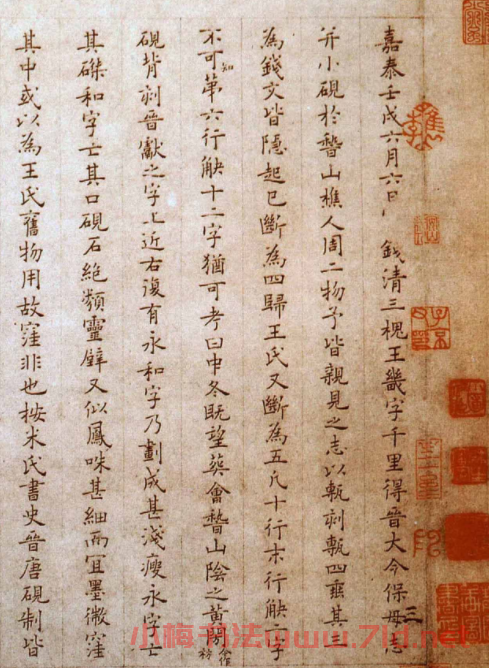 嘉泰壬戌六月六日 錢清三槐王畿字千里得晉大令保母志
并小硯於稽山樵人周二物予皆親見之志以甎刻甎四垂其三
為錢文皆隱起已斷為四歸王氏又斷為五凡十行末行缺二字
不可知第六行缺十二字猶可考曰中冬既望葬會稽山陰之黃閍
硯背刻晉獻之字上近右復有永和字乃劃成甚淺瘦永字亡
其磔和字亡其口硯石絕類靈壁又似鳳咮甚細而宜墨微窪
其中或以為王氏舊物用故窪非也按米氏書史晉唐硯制皆
小梅书法www.7ld.net